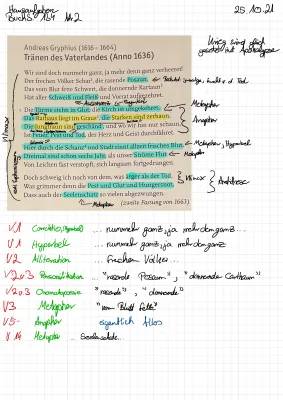 Hausaufgaben
Buch S. 154 Nr. 2
25.10.21
Andreas Gryphius (1616 – 1664)
Tränen des Vaterlandes (Anno 1636)
Wir sind doch nunmehr ganz, ja mehr denn ganz verheeret!
Der frechen Völker Schar, die rasende Posaun,
Das vom Blut fette Schwert, die donnernde Kartaun
Hat aller Schweiß und Fleiß und Vorrat aufgezehret.
Die Türme stehn in Glut, die Kirch ist umgekehret,
Das Rathaus liegt im Graus, die Starken sind zerhaun,
Die Jungfraun sind geschändt, und wo wir hin nur schaun,
Ist Feuer, Pest und Tod, der Herz und Geist durchfähret.
Hier durch die Schanz und Stadt rinnt allzeit frisches Blut.
Dreimal sind schon sechs Jahr, als unser Ströme Flut
Von Leichen fast verstopft, sich langsam fortgedrungen.
Doch schweig ich noch von dem, was ärger als der Tod,
Was grimmer denn die Pest und Glut und Hungersnot,
Dass auch der Seelenschatz so vielen abgezwungen.
(zweite Fassung von 1663)
Metapher
Metapher
Anapher
Metapher, Hyperbel
Metapher
Klimax
Antithese
Metapher
Klimax
V. 1 ... nunmehr ganz, ja mehr denn ganz ...
V. 1 Hyperbel ... nunmehr ganz, ja mehr denn ganz
V. 2 Alliteration ... frechen Völker ...
V. 2 u. 3 Personifikation ... "rasende Posaun", "donnernde Carthaun"
V. 2 u. 3 Onomatopoesie "rasende", "donnernde"
V. 3 Metapher "vom Blutt fette"
V. 5- Anapher eigentlich alles
V. 14 Metapher ... Seelenschatz...